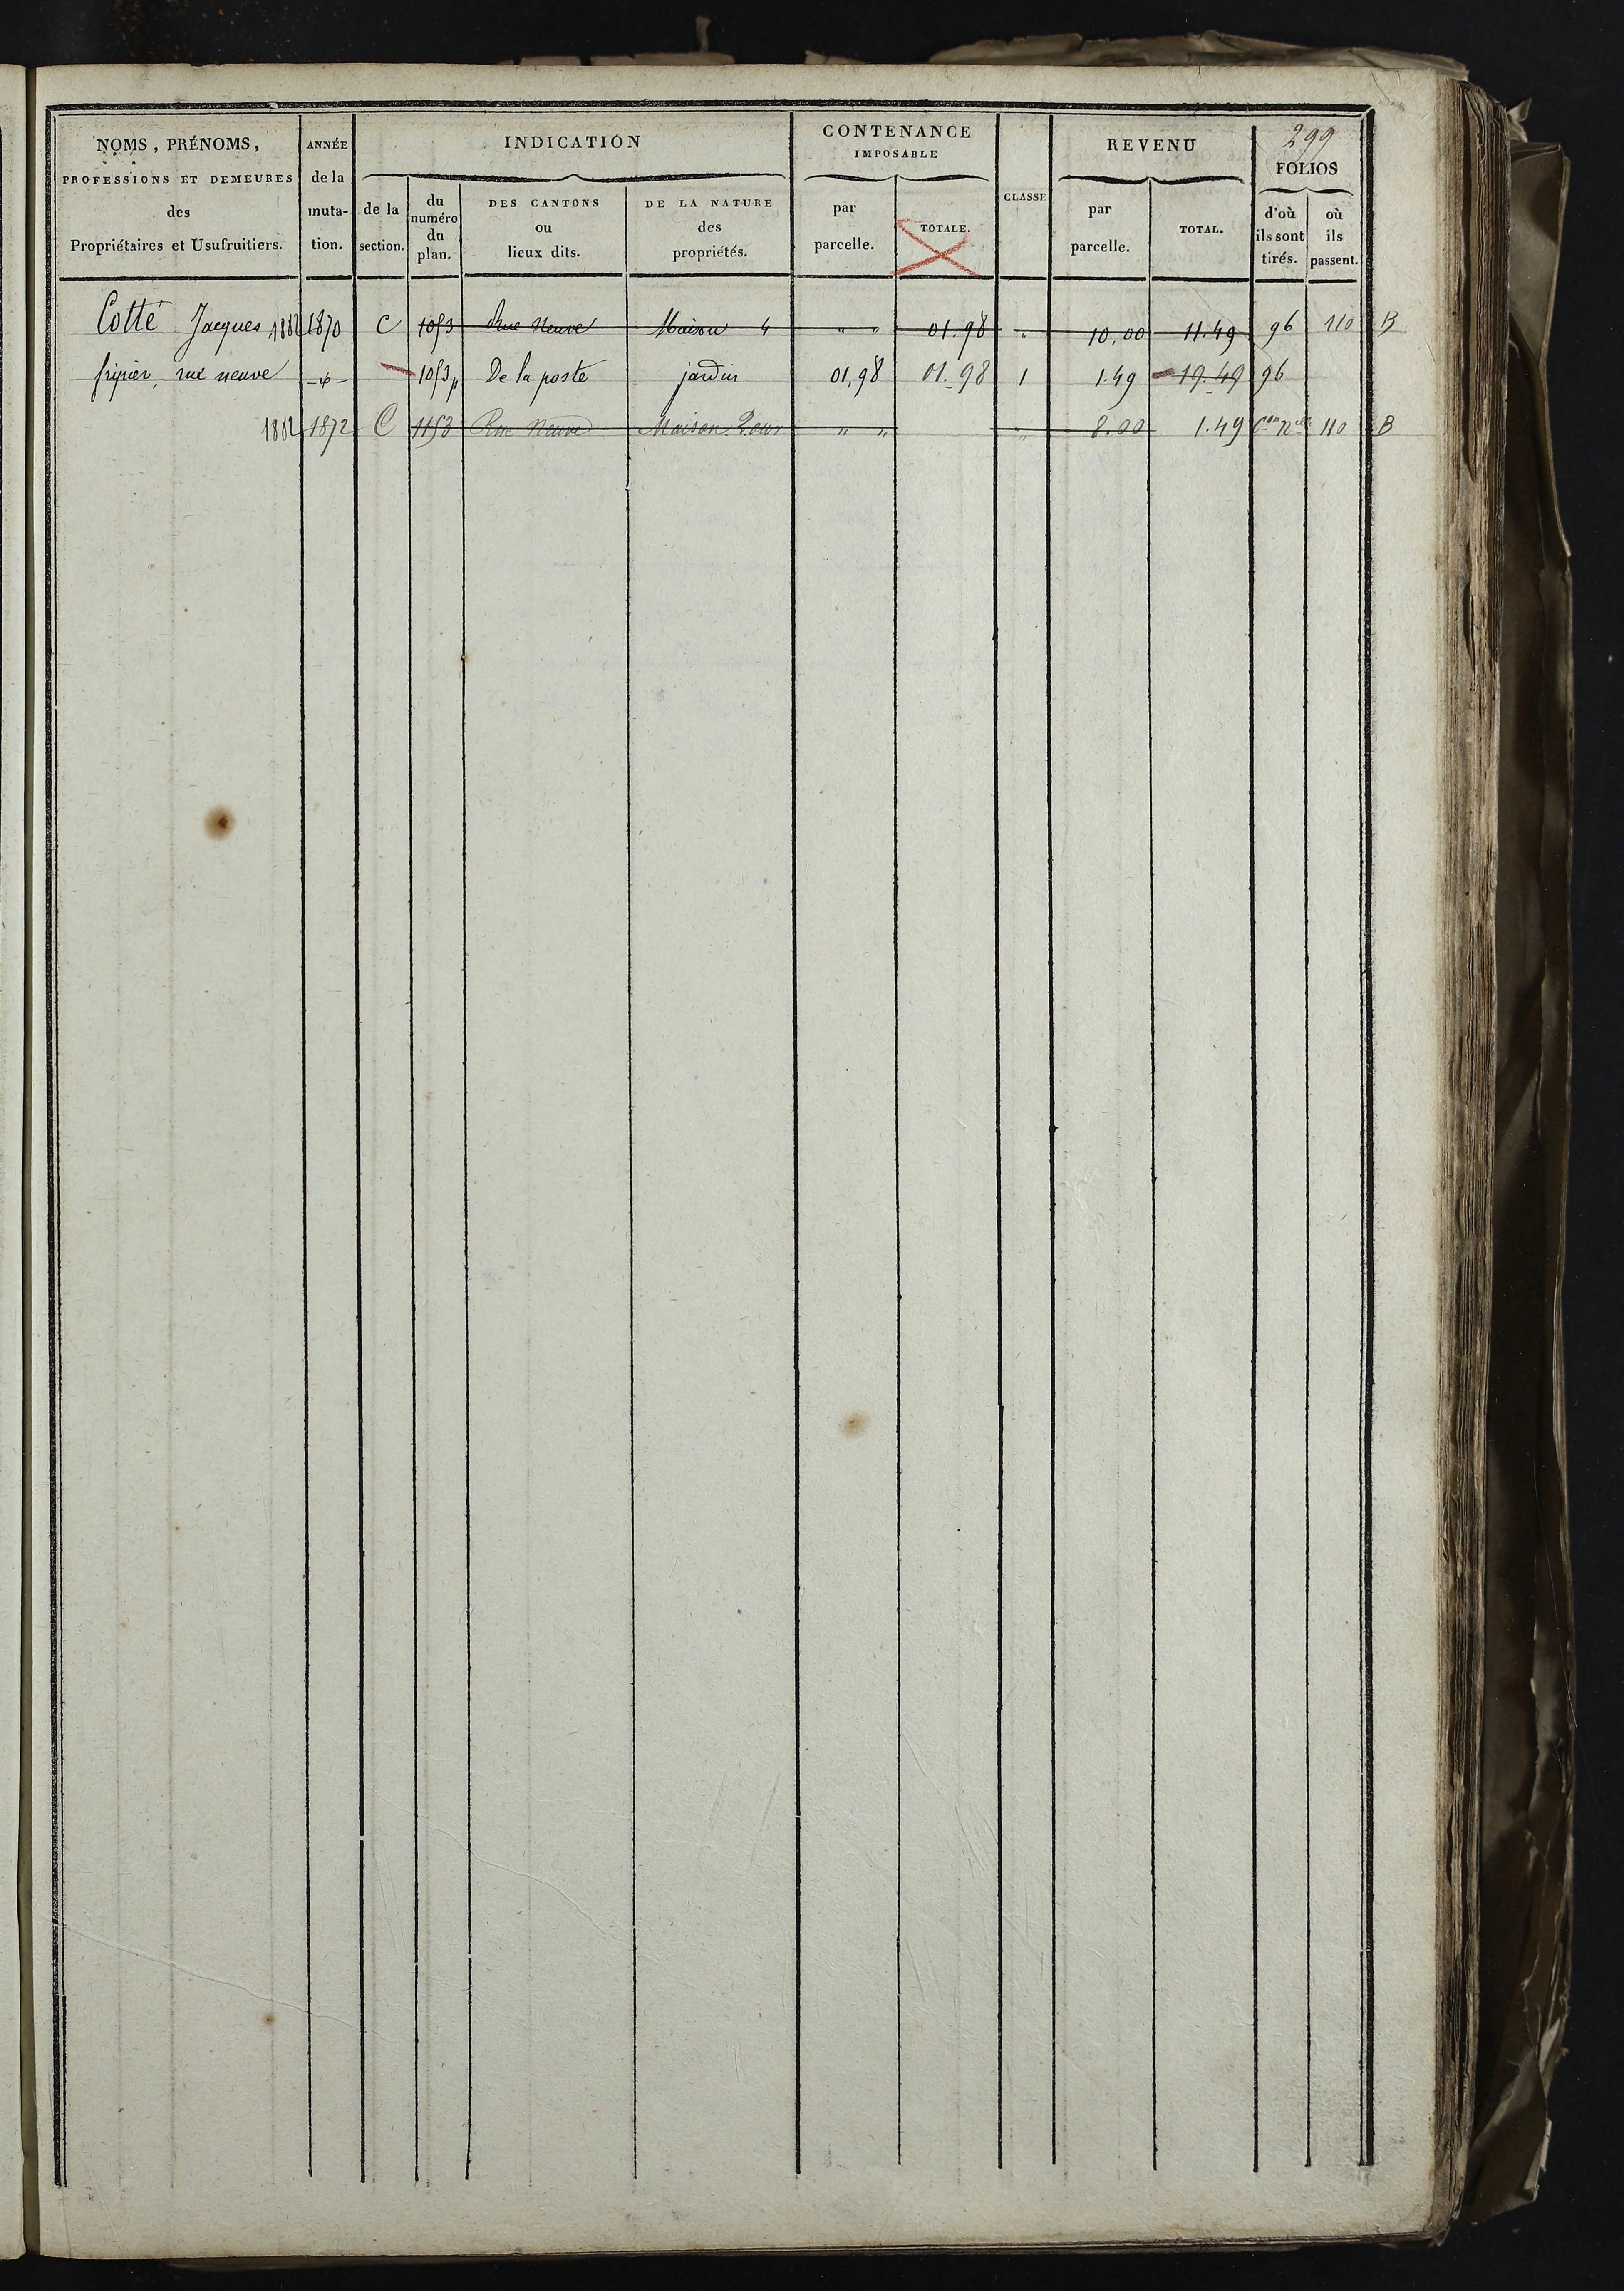 299
NOMS, PRÉNOMS,
PROFESSIONS ET DEMEURES
des
Propriétaires et Usufruitiers.
ANNÉE
de la
muta-
tion.
INDICATION
de la
section.
du
numéro
du
plan.
DES CANTONS
ou
lieux dits.
DE LA NATURE
des
propriétés.
CONTENANCE
IMPOSABLE
par
parcelle.
TOTALE.
CLASSE
REVENU
par
parcelle.
TOTAL.
FOLIOS
d'où
ils sont
tirés.
où
ils
passent.
Cotté Jacques 1882 1870 C 1053 Rue Neuve Maison 4 " " 01.98 " 10,00 11.49 96 110 B
fripier, rue neuve -d°- 1053p De la poste jardin 01,98 01.98 1 1.49 19.49 96
1882 1872 C 1153 Rue Neuve Maison " " " 8.00 1.49 110 B